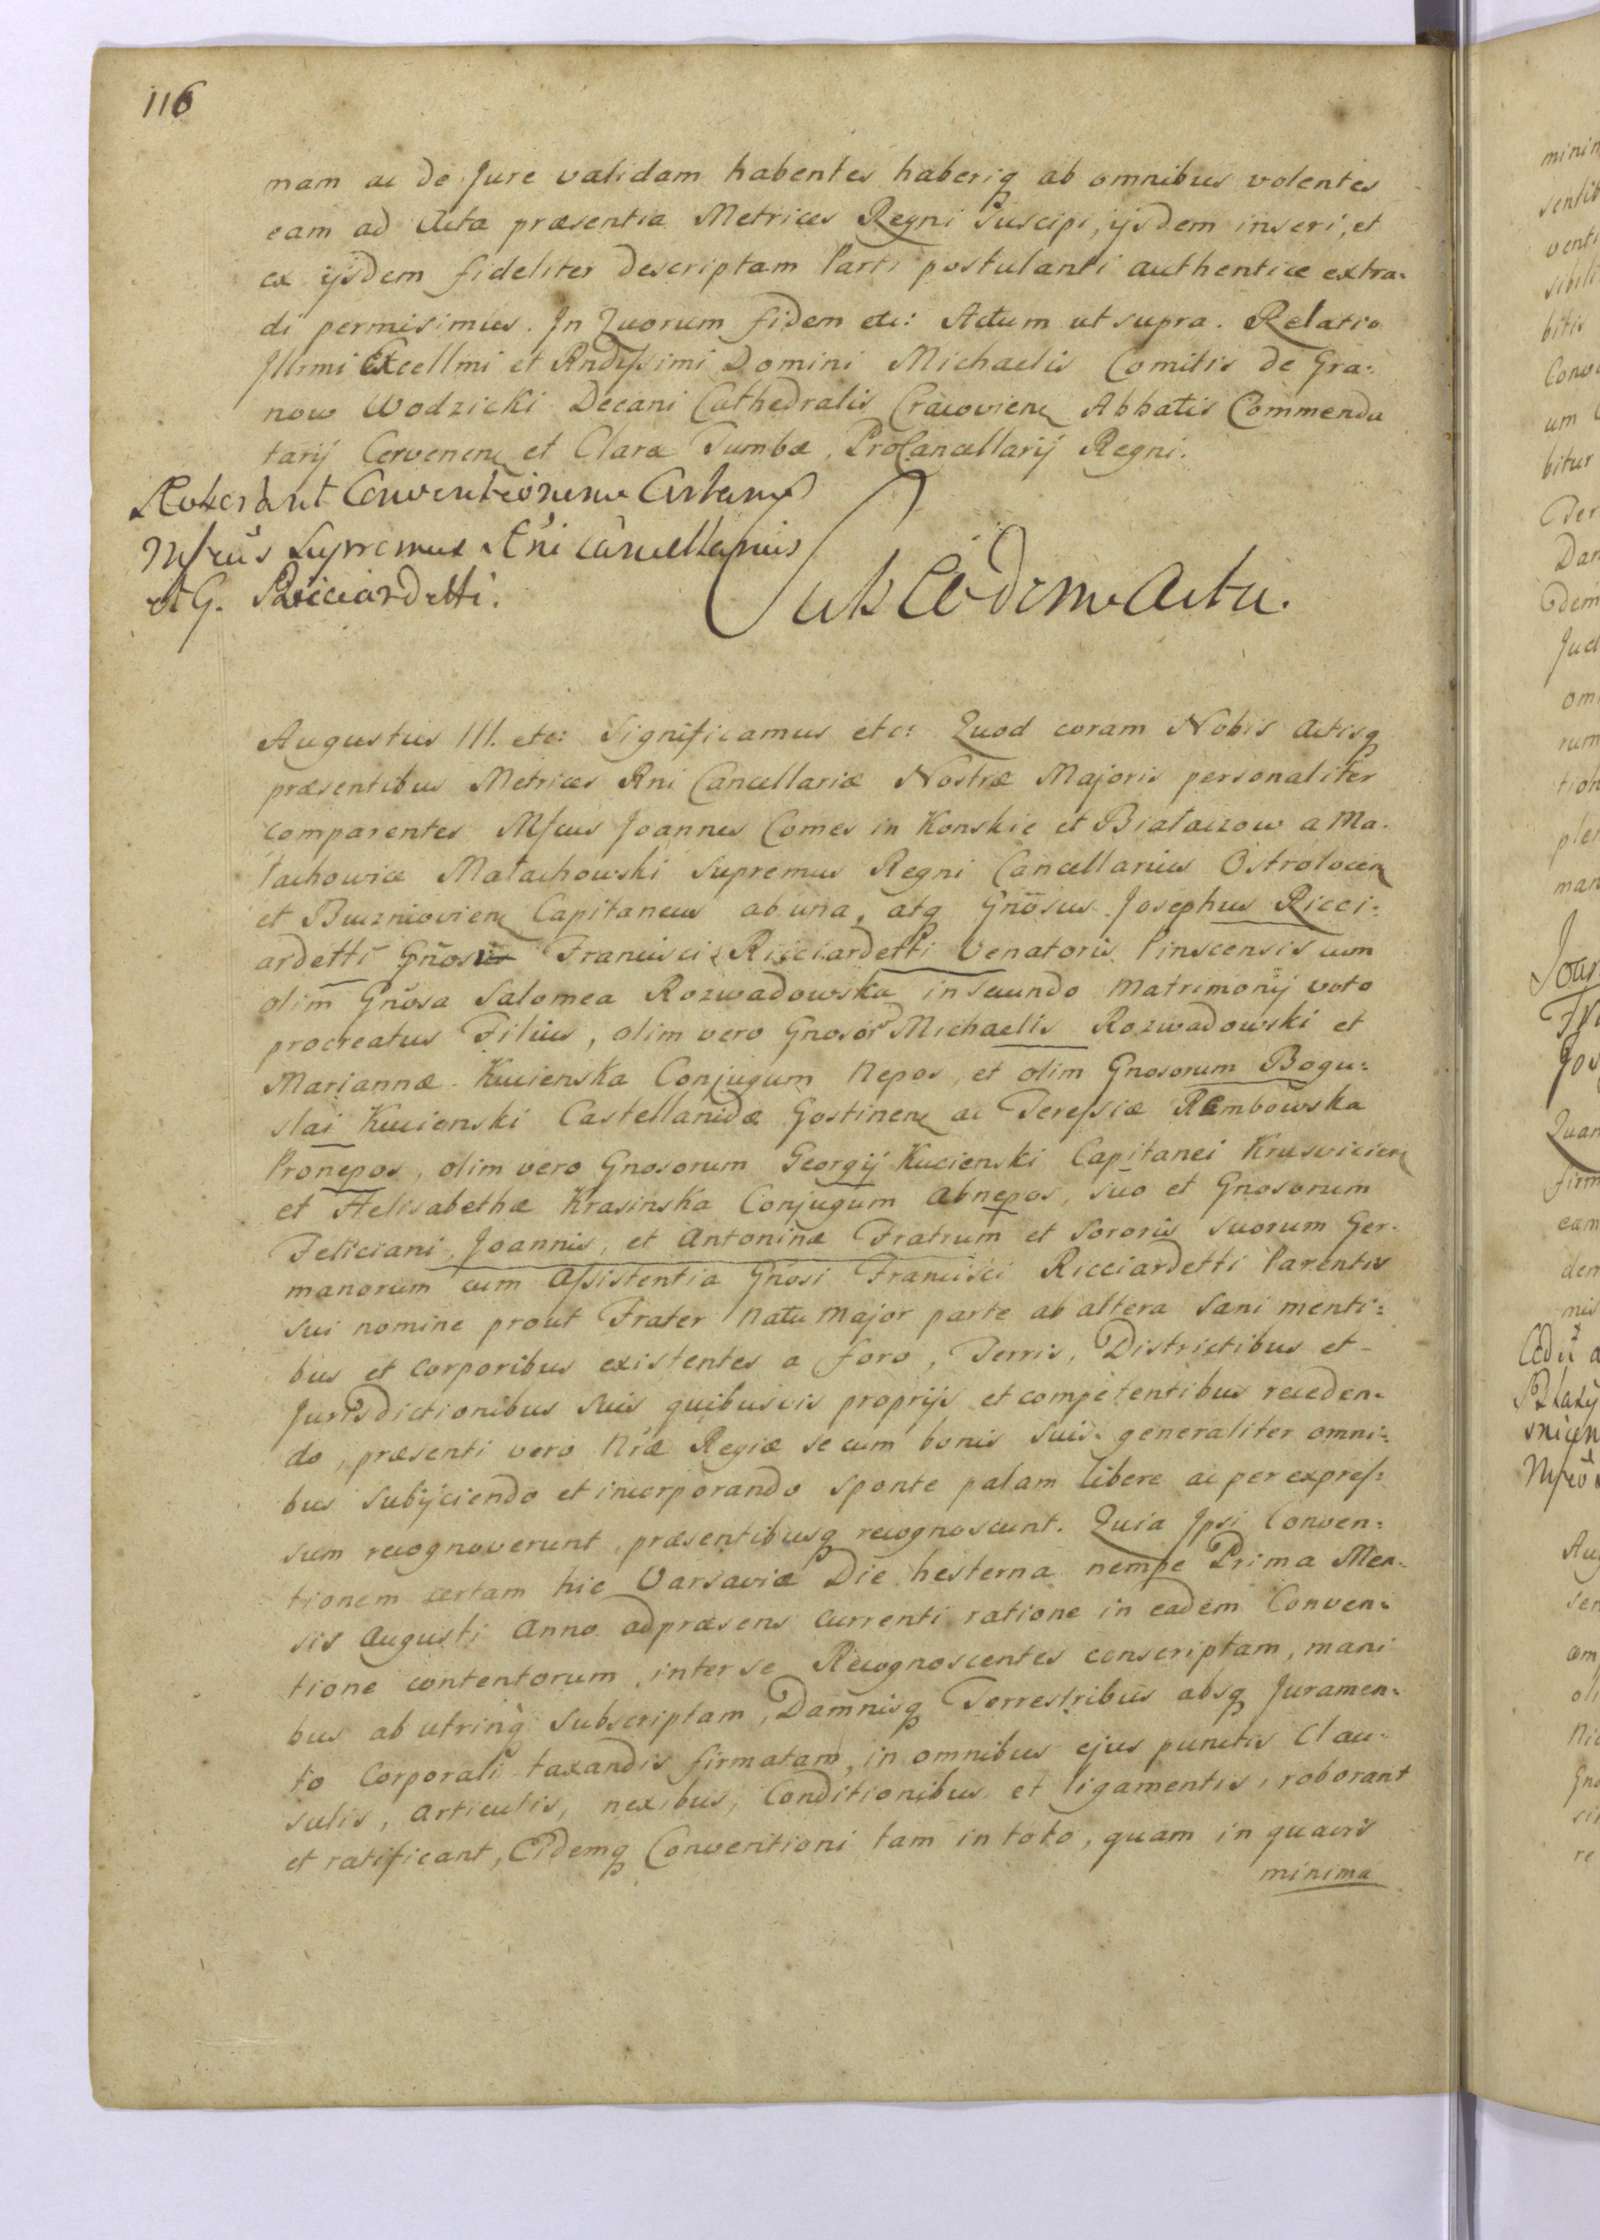 116
nam ac de Jure validam habentes haberiq ab omnibus volentes
eam ad Acta præsentia Metrices Regni Suscipi, ijsdem inseri, et
ex ijsdem fideliter descriptam Parti postulanti authentice extra:
di permisimus. In Quorum fidem etc: Actum ut supra. Relatio
Illrmi Excellmi et Rndissimi Domini Michaelis Comitis de Gra:
now Wodzicki Decani Cathedralis Cracovien Abbatis Commenda
tarij Cervenen et Claræ Tumbæ, ProCancellarij Regni.
Roborant Conventionem Certam
Mfcus Supremus Rni Cancellarius
et G. Ricciardetti.
Sub Eodem Actu.
Augustus III. etc: Significamus etc: Quod coram Nobis Actisq
præsentibus Metrices Rni Cancellariæ Nostræ Majoris personaliter
comparentes Mfcus Joannes Comes in Konskie et Białaczow a Ma:
łachowice Małachowski Supremus Regni Cancellarius Ostrołocen
et Buzniovien Capitaneus ab una, atq Gnosus Josephus Ricci:
ardetti Gnosi Francisci Ricciardetti Venatoris Pinscensis cum
olim Gnosa Salomea Rozwadowska in Secundo Matrimonij voto
procreatus Filius, olim vero Gnosor Michaelis Rozwadowski et
Mariannæ Kucienska Conjugum Nepos, et olim Gnosorum Bogu:
slai Kucienski Castellanidæ Gostinen ac Teressiæ Rembowska
Pronepos, olim vero Gnosorum Georgij Kucienski Capitanei Krusvicien
et Helisabethæ Krasinska Conjugum Abnepos, suo et Gnosorum
Feliciani, Joannis, et Antoninæ Fratrum et Sororis suorum Ger:
manorum cum Assistentia Gnosi Francisci Ricciardetti Parentis
sui nomine prout Frater Natu Major parte ab altera Sani menti:
bus et corporibus existentes a foro, Terris, Districtibus et
Jurisdictionibus suis quibusvis proprijs et competentibus receden:
do, præsenti vero Nræ Regiæ se cum bonis suis generaliter omni:
bus subijciendo et incorporando sponte palam libere ac per expres:
sum recognoverunt, præsentibusq recognoscunt. Quia Ipsi Conven:
tionem certam hic Varsaviæ Die hesterna nempe Prima Men:
sis Augusti Anno adpræsens currenti ratione in eadem Conven:
tione contentorum, inter se Recognoscentes conscriptam, mani
bus ab utrinq Subscriptam, Damnisq Terrestribus absq Juramen:
to Corporali taxandis firmatam, in omnibus ejus punctis Clau:
sulis, Articulis, nexibus, Conditionibus et ligamentis, roborant
et ratificant, Eidemq Conventioni tam in toto, quam in quavis
minima